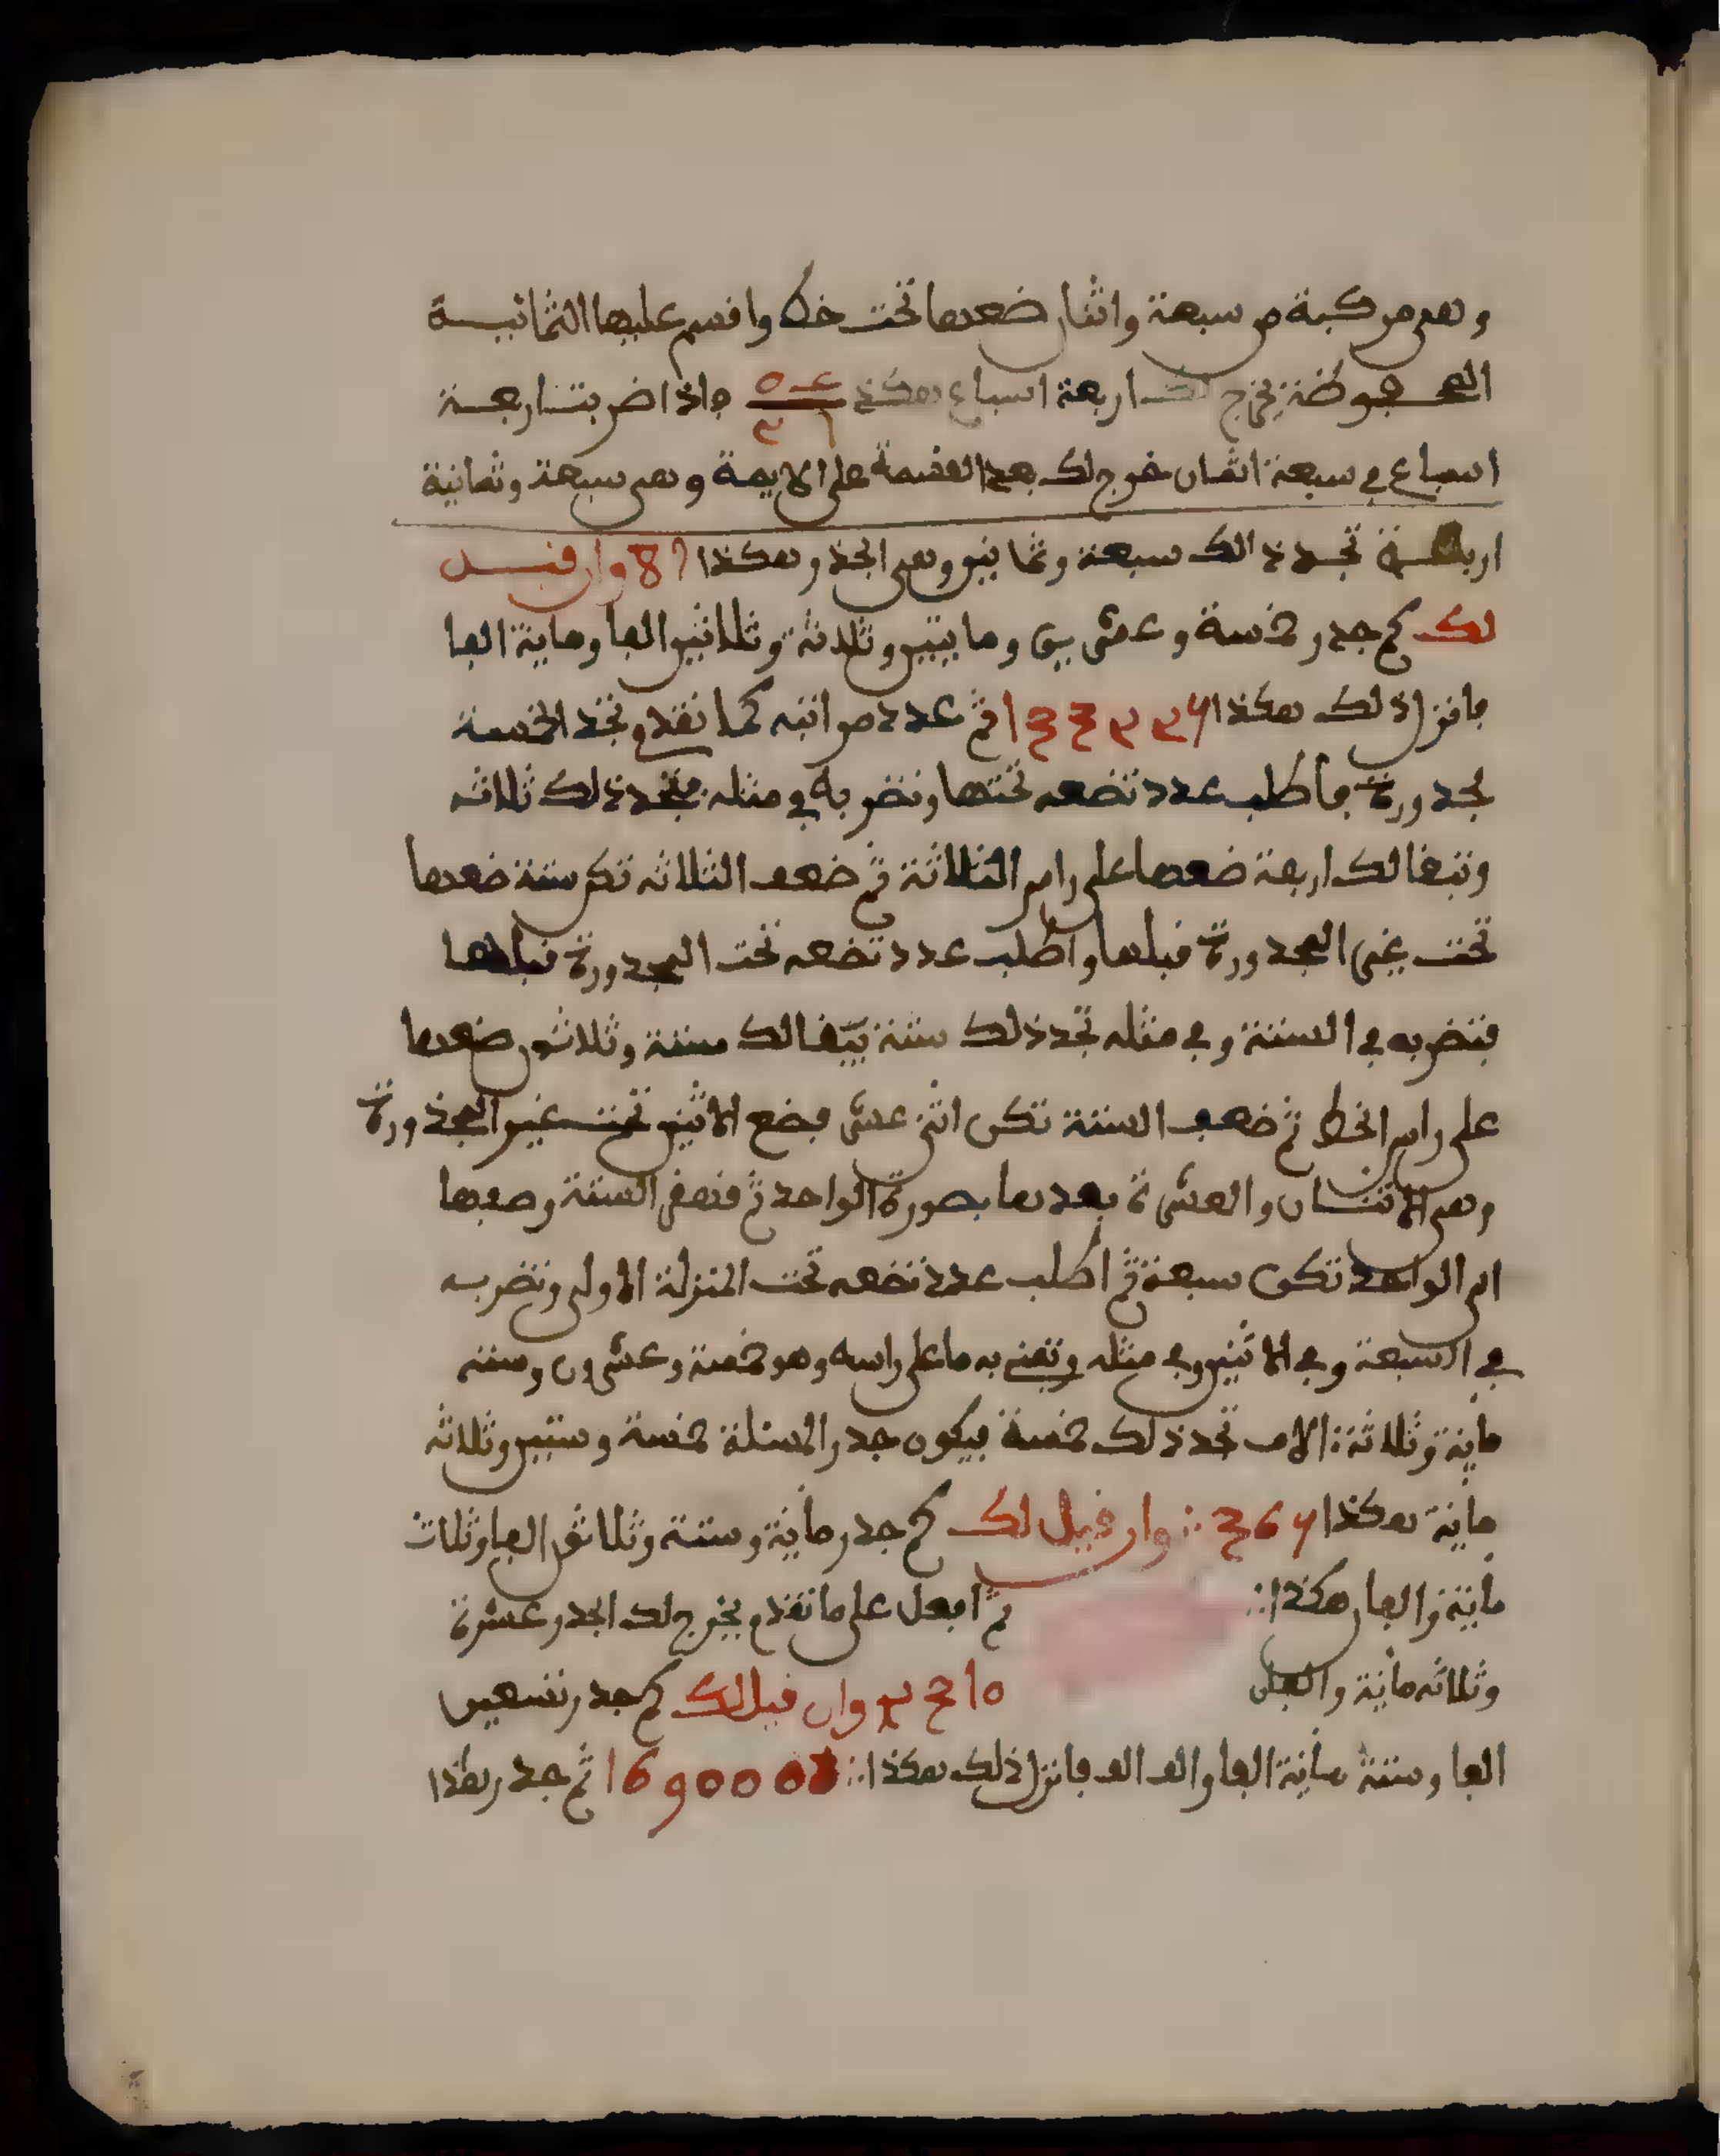 وهي مركبة من سبعة واثمان ضعها تحت خط واقسم عليها الثمانية
المحفوظة يخرج لك اربعة اسباع هكذا واذا ضربت اربعة
اسباع في سبعة اثمان خرج لك بعد القسمة على الايمة وهي سبعة وثمانية
اربعة تجد ذالك سبعة وثمانين وهي الجذر وهكذا 87 وان قيل
لك كم جدر خمسة وعشرين ومايتين وثلاثة وثلاثين الفا وماية الفا
فانزل ذلك هكذا 133225 ثم عدد مراتبه كما تقدم تجد الخمسة
مجدورة فاطلب عدد تضعه تحتها وتضربه في مثله فتجد ذلك ثلاثه
وتبقا لك اربعة ضعها على راس الثلاثة ثم ضعف الثلاثه تكن ستة ضعها
تحت غير المجدورة قبلها واطلب عدد تضعه تحت المجدورة قبلها
فتضربه في الستة وفي مثله تجد ذلك ستة يبقا لك ستة وثلاثون ضعها
على راس الخط ثم ضعف الستة تكن اثني عشر فضع الاثنين تحت غير المجذورة
وهي الاثنان والعشرة بعدها بصورة الواحد ثم فنهض الستة وصفها
الى الواحد تكن سبعة ثم اطلب عدد تضعه تحت المنزلة الاولى وتضربه
في السبعة وفي الاثنين وفي مثله وتفني به ما على راسه وهو خمسة وعشرون وستة
ماية وثلاثة الاف تجد ذلك خمسة فيكون جدر المسئلة خمسة وستين وثلاثه
ماية هكذا 365 وان قيل لك كم جدر ماية وستة وثلاثين الفا وثلاث
ماية والفا هكذا ثم افعل على ما تقدم يخرج لك الجدر عشرة
وثلاثه ماية والفان وان قيل لك كم جدر تسعين
الفا وستة ماية الفا والف الف فانزل ذلك هكذا 1690000 ثم جدر هذا